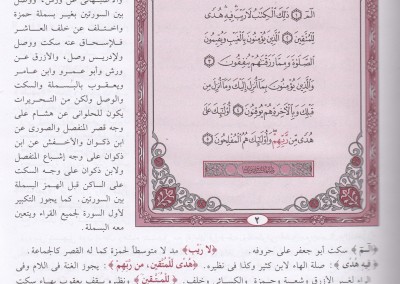 بين السورتين بغير بسملة حمزة
واختلف عن خلف العاشر
فلإسحاق عنه سكت ووصل
ولإدريس وصل، والأزرق عن
ورش وأبو عمرو وابن عامر
ويعقوب بالبسملة والسكت
والوصل ولكن من التحريرات
يكون للحلواني عن هشام على
وجه قصر المنفصل والصورى عن
ابن ذكوان والأخفش عن ابن
ذكوان على وجه إشباع المتصل
ولابن ذكوان على وجه السكت
على الساكن قبل الهمز البسملة
بين السورتين. كما يجوز التكبير
لأول السورة لجميع القراء ويتعين
معه البسملة.
الٓمٓ ١ ذَٰلِكَ ٱلْكِتَٰبُ لَا رَيْبَ فِيهِ هُدًى
لِّلْمُتَّقِينَ ٢ ٱلَّذِينَ يُؤْمِنُونَ بِٱلْغَيْبِ وَيُقِيمُونَ
ٱلصَّلَوٰةَ وَمِمَّا رَزَقْنَٰهُمْ يُنفِقُونَ ٣
وَٱلَّذِينَ يُؤْمِنُونَ بِمَآ أُنزِلَ إِلَيْكَ وَمَآ أُنزِلَ مِن
قَبْلِكَ وَبِٱلْءَاخِرَةِ هُمْ يُوقِنُونَ ٤ أُو۟لَٰٓئِكَ عَلَىٰ
هُدًى مِّن رَّبِّهِمْ وَأُو۟لَٰٓئِكَ هُمُ ٱلْمُفْلِحُونَ ٥
٢
﴿الٓمٓ﴾ سكت أبو جعفر على حروفه. ﴿لا رَيْبَ﴾ مد لا متوسطاً لحمزة كما له القصر كالجماعة.
﴿فِيهِ هُدًى﴾: صلة الهاء لابن كثير وكذا فى نظيره. ﴿هُدًى لِلْمُتَّقِينَ، مِن رَّبِّهِمْ﴾: يجوز الغنة فى اللام وفى
الراء لغير الأزرق وشعبة وحمزة والكسائى وخلف. ﴿لِلْمُتَّقِينَ﴾ ونظيره يقف يعقوب بهاء سكت